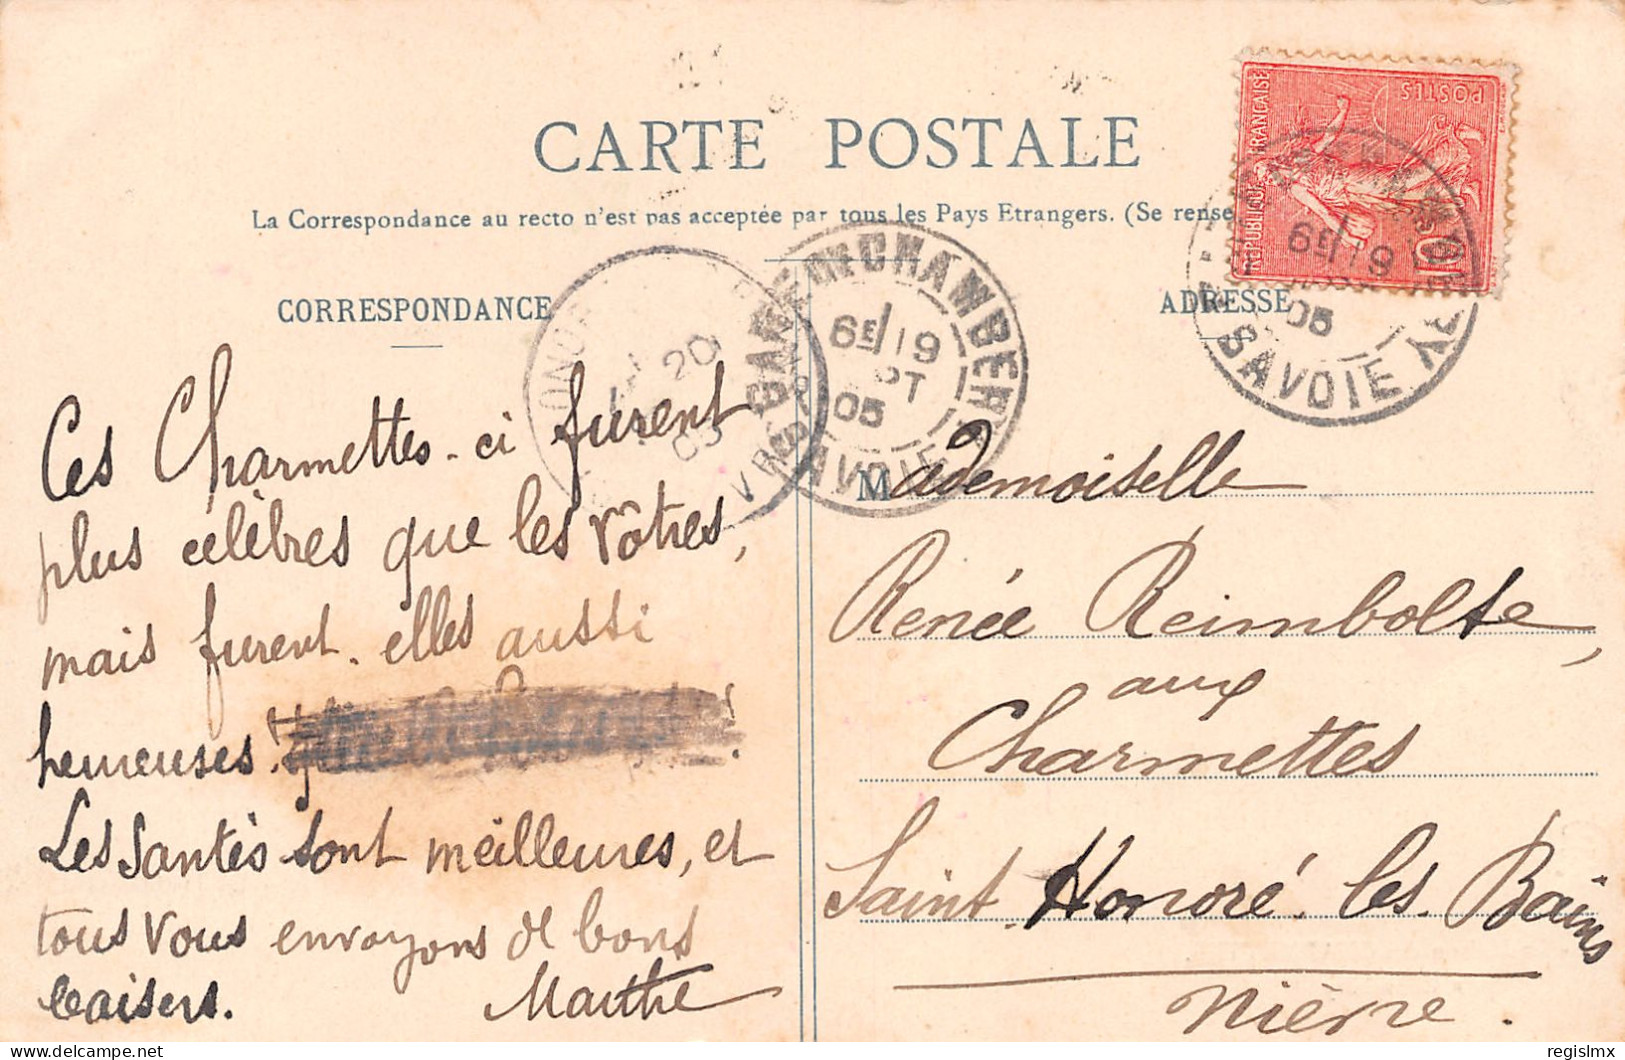 CARTE POSTALE
La Correspondance au recto n'est pas acceptée par tous les Pays Etrangers. (Se rense
CORRESPONDANCE
ADRESSE
REPUBLIQUE FRANÇAISE
POSTES
10
CHAMBERY
6E 19
PT
05
SAVOIE
6E 19
05
SAVOIE
20
05
Ces Charmettes-ci furent
plus célèbres que les vôtres,
mais furent-elles aussi
heureuses
Les Santés sont meilleures, et
tous vous envoyons de bons
baisers. Marthe
Mademoiselle
Renée Reimbolte,
aux
Charmettes
Saint-Honoré-les-Bains
Nièvre.
regislmx